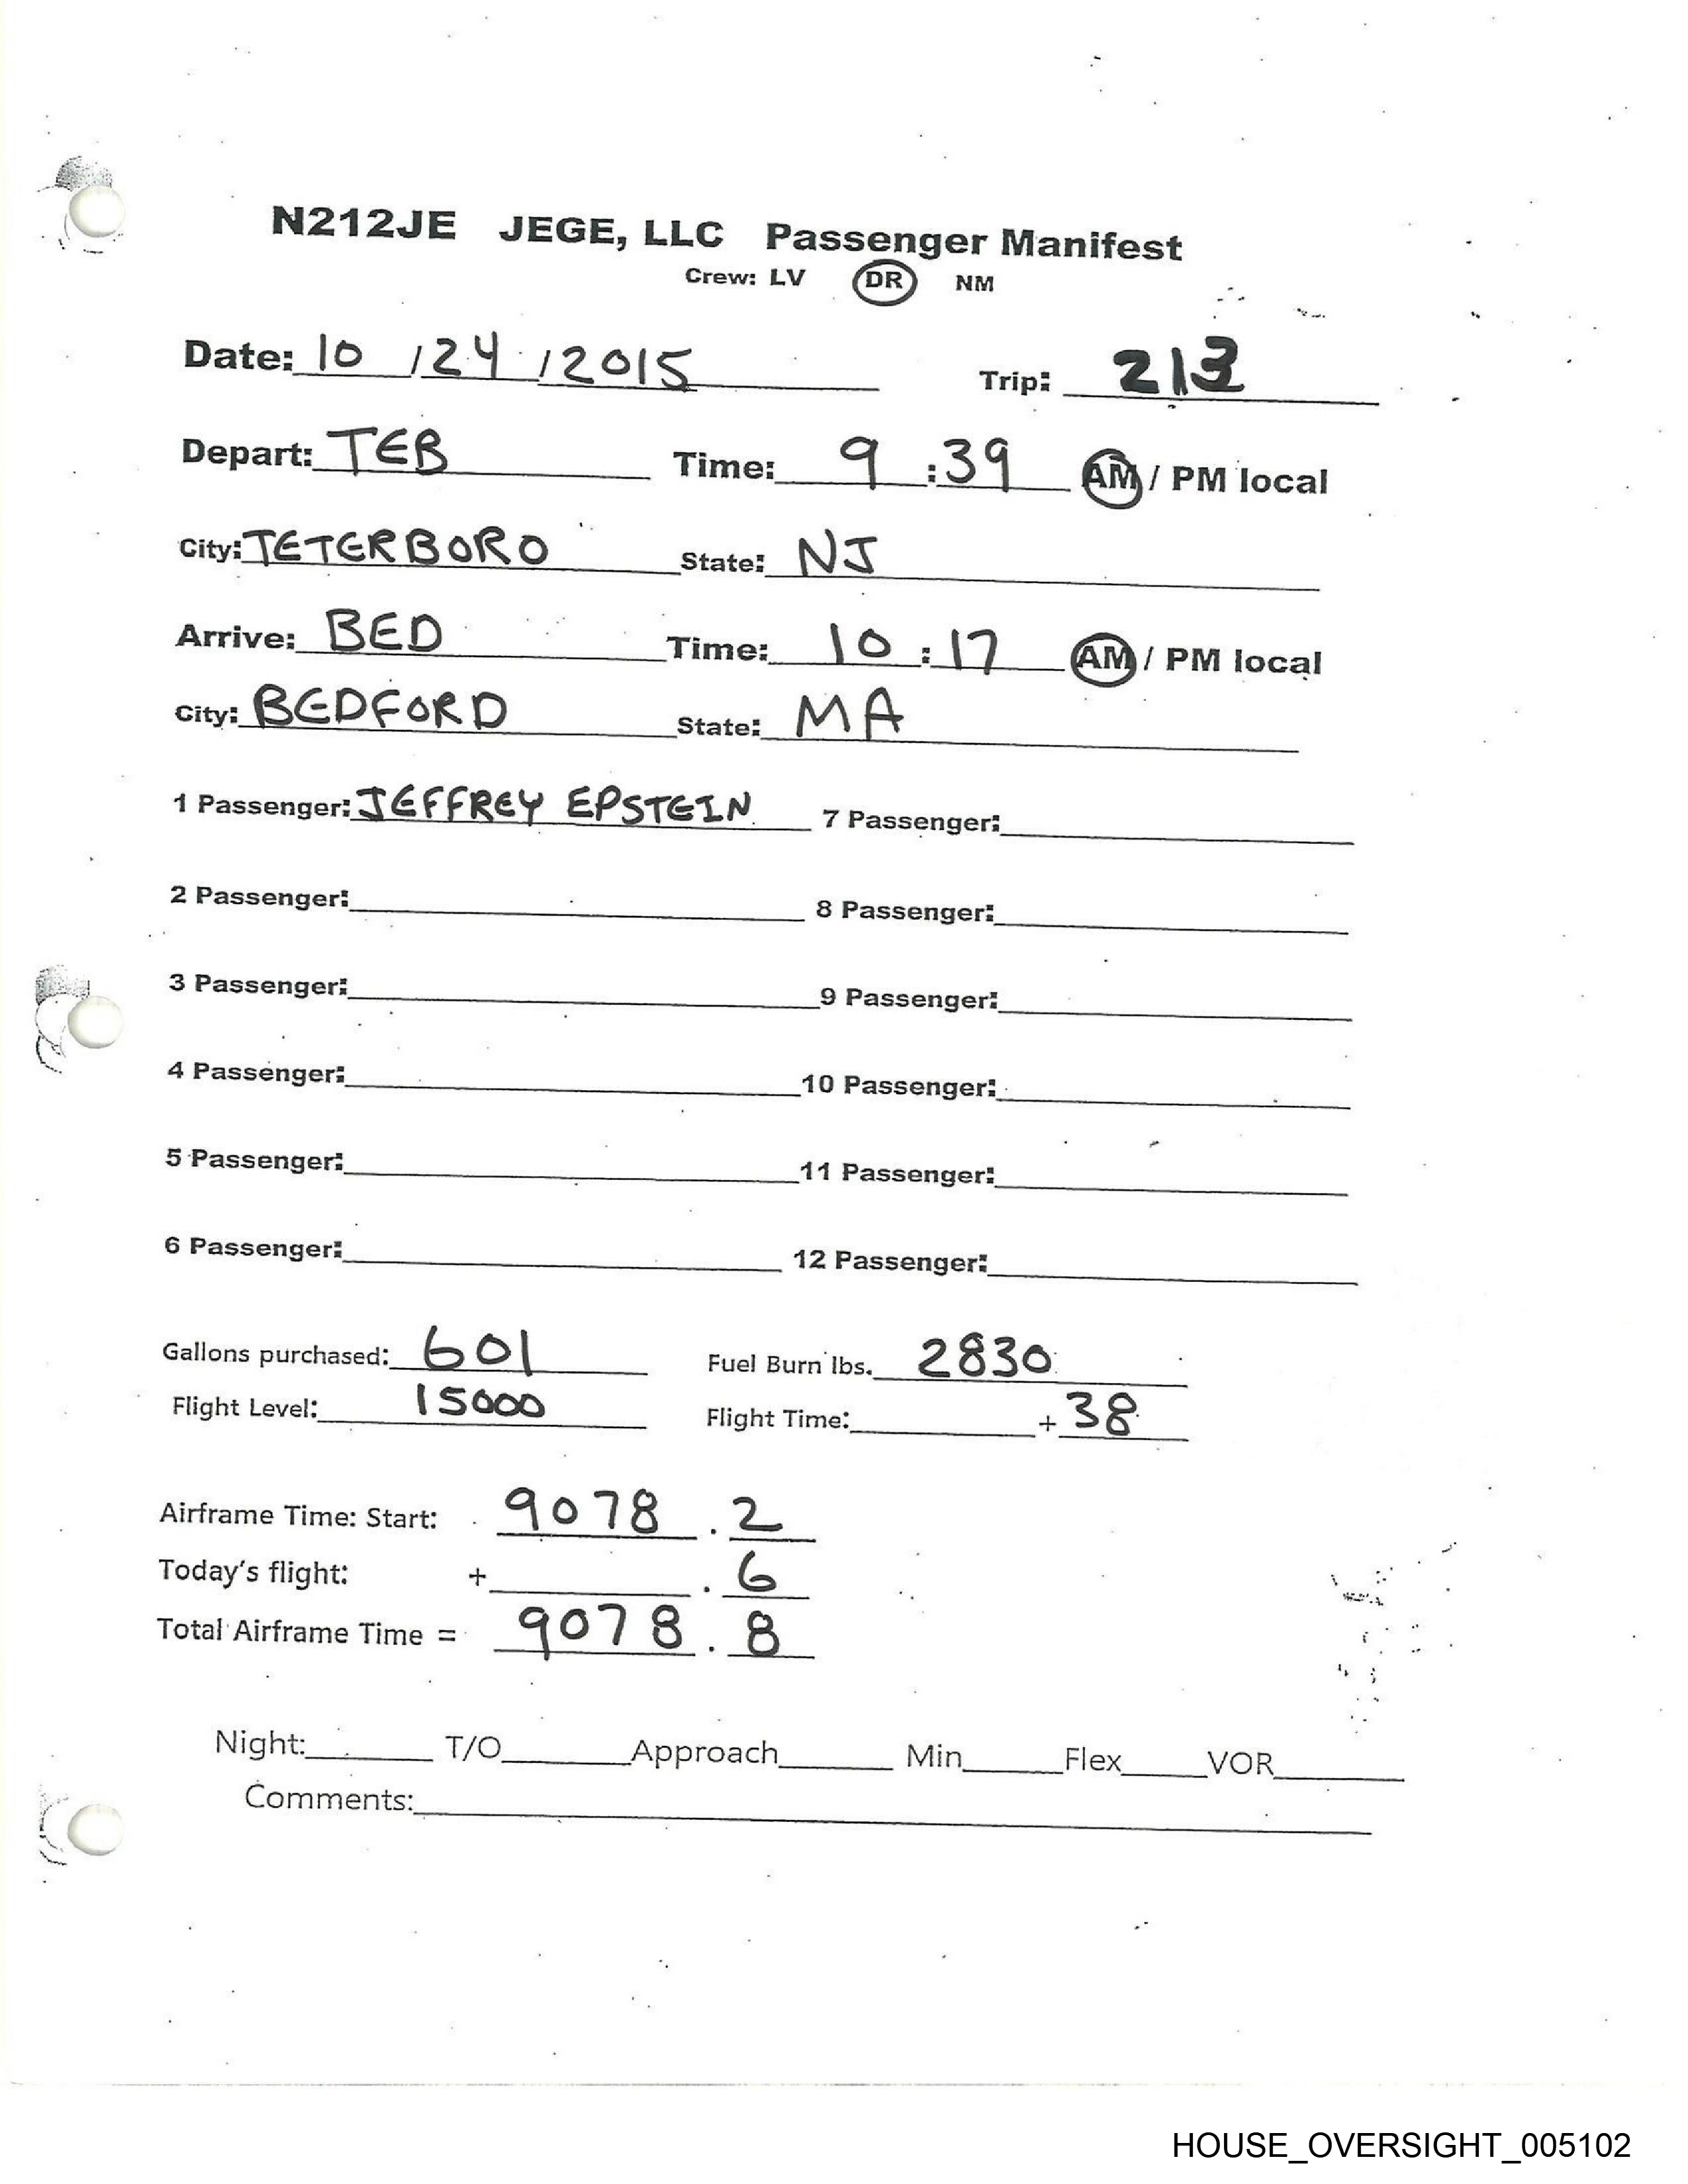 N212JE JEGE, LLC Passenger Manifest
Crew: LV DR NM
Date: 10 / 24 / 2015 Trip: 213
Depart: TEB Time: 9 : 39 AM / PM local
City: TETERBORO State: NJ
Arrive: BED Time: 10 : 17 AM / PM local
City: BEDFORD State: MA
1 Passenger: JEFFREY EPSTEIN 7 Passenger:
2 Passenger: 8 Passenger:
3 Passenger: 9 Passenger:
4 Passenger: 10 Passenger:
5 Passenger: 11 Passenger:
6 Passenger: 12 Passenger:
Gallons purchased: 601 Fuel Burn lbs. 2830
Flight Level: 15000 Flight Time: + 38
Airframe Time: Start: 9078 . 2
Today's flight: + . 6
Total Airframe Time = 9078 . 8
Night: T/O Approach Min Flex VOR
Comments:
HOUSE_OVERSIGHT_005102